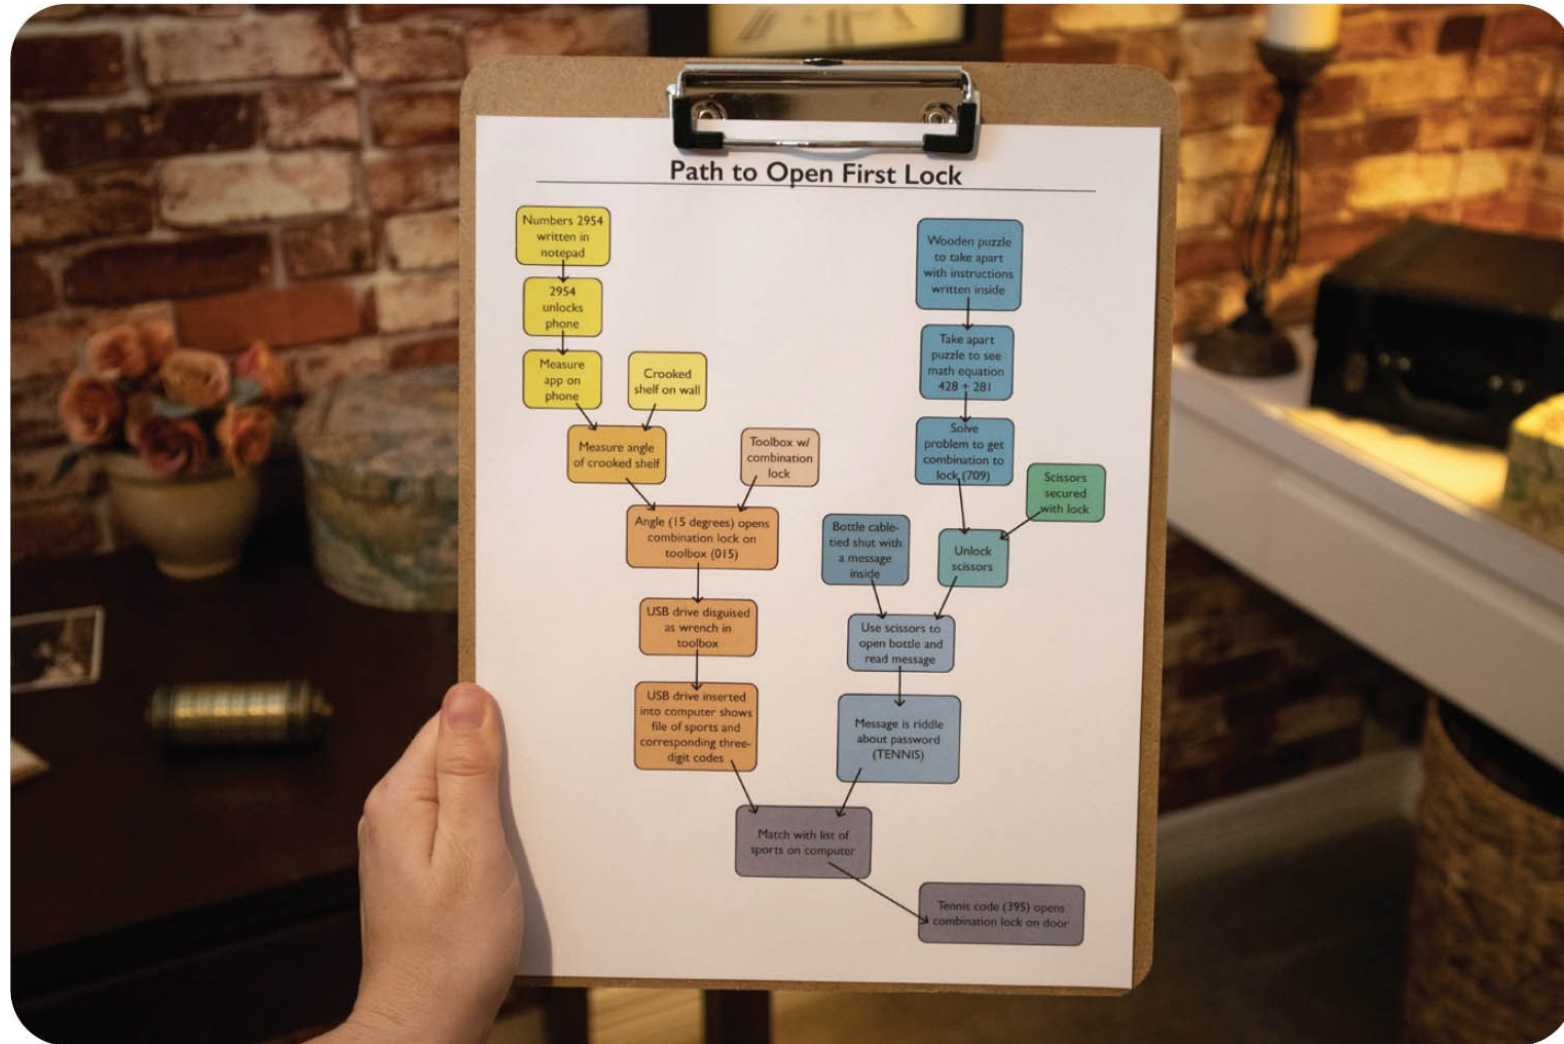 Path to Open First Lock
Numbers 2954
written in
notepad
2954
unlocks
phone
Measure
app on
phone
Crooked
shelf on wall
Measure angle
of crooked shelf
Toolbox w/
combination
lock
Angle (15 degrees) opens
combination lock on
toolbox (015)
USB drive disguised
as wrench in
toolbox
USB drive inserted
into computer shows
file of sports and
corresponding three-
digit codes
Wooden puzzle
to take apart
with instructions
written inside
Take apart
puzzle to see
math equation
428 + 281
Solve
problem to get
combination to
lock (709)
Scissors
secured
with lock
Bottle cable-
tied shut with
a message
inside
Unlock
scissors
Use scissors to
open bottle and
read message
Message is riddle
about password
(TENNIS)
Match with list of
sports on computer
Tennis code (395) opens
combination lock on door